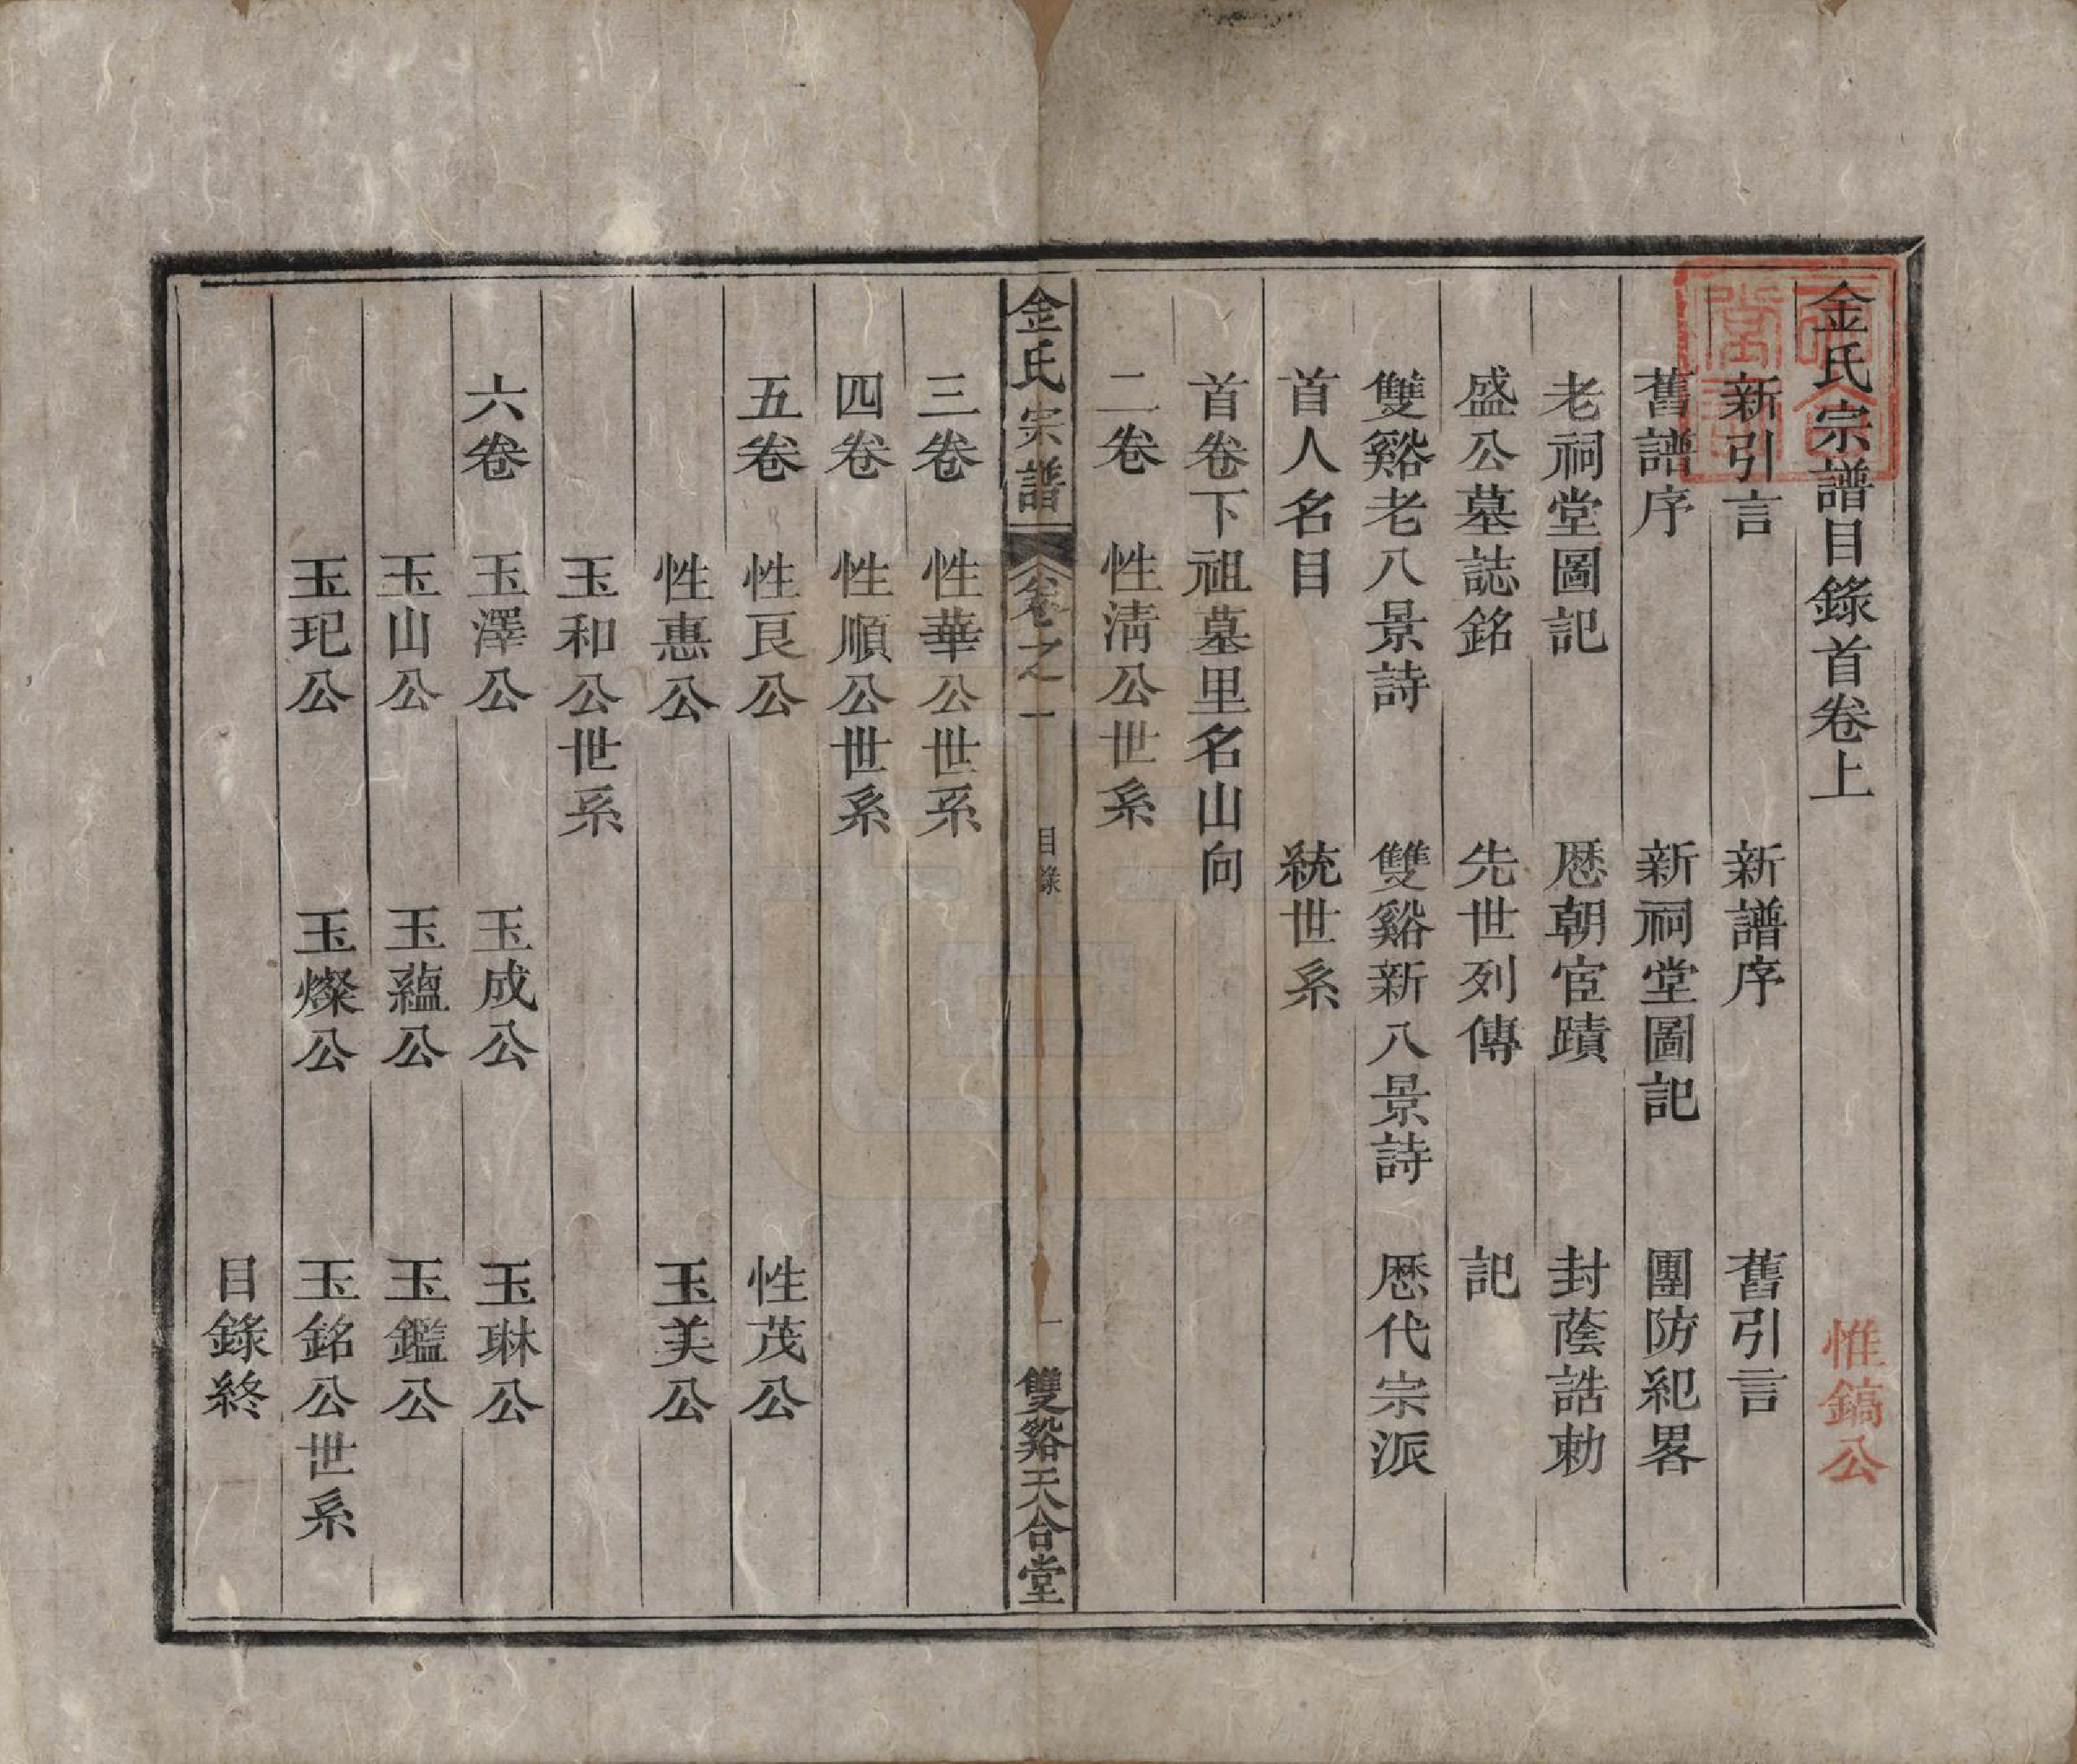 金氏宗譜目錄首卷上
惟鎬公
新引言　新譜序　舊引言
舊譜序　新祠堂圖記　團防紀畧
老祠堂圖記　厯朝宦蹟　封蔭誥勅
盛公墓誌銘　先世列傳　記
雙谿老八景詩　雙谿新八景詩　厯代宗派
首人名目　統世系
首卷下祖墓里名山向
二卷　性淸公世系
金氏宗譜　卷之一　目錄　一　雙谿天合堂
三卷　性華公世系
四卷　性順公世系
五卷　性良公　性茂公
性惠公　玉美公
玉和公世系
六卷　玉澤公　玉成公　玉琳公
玉山公　玉蘊公　玉鑑公
玉玘公　玉燦公　玉銘公世系
目錄終